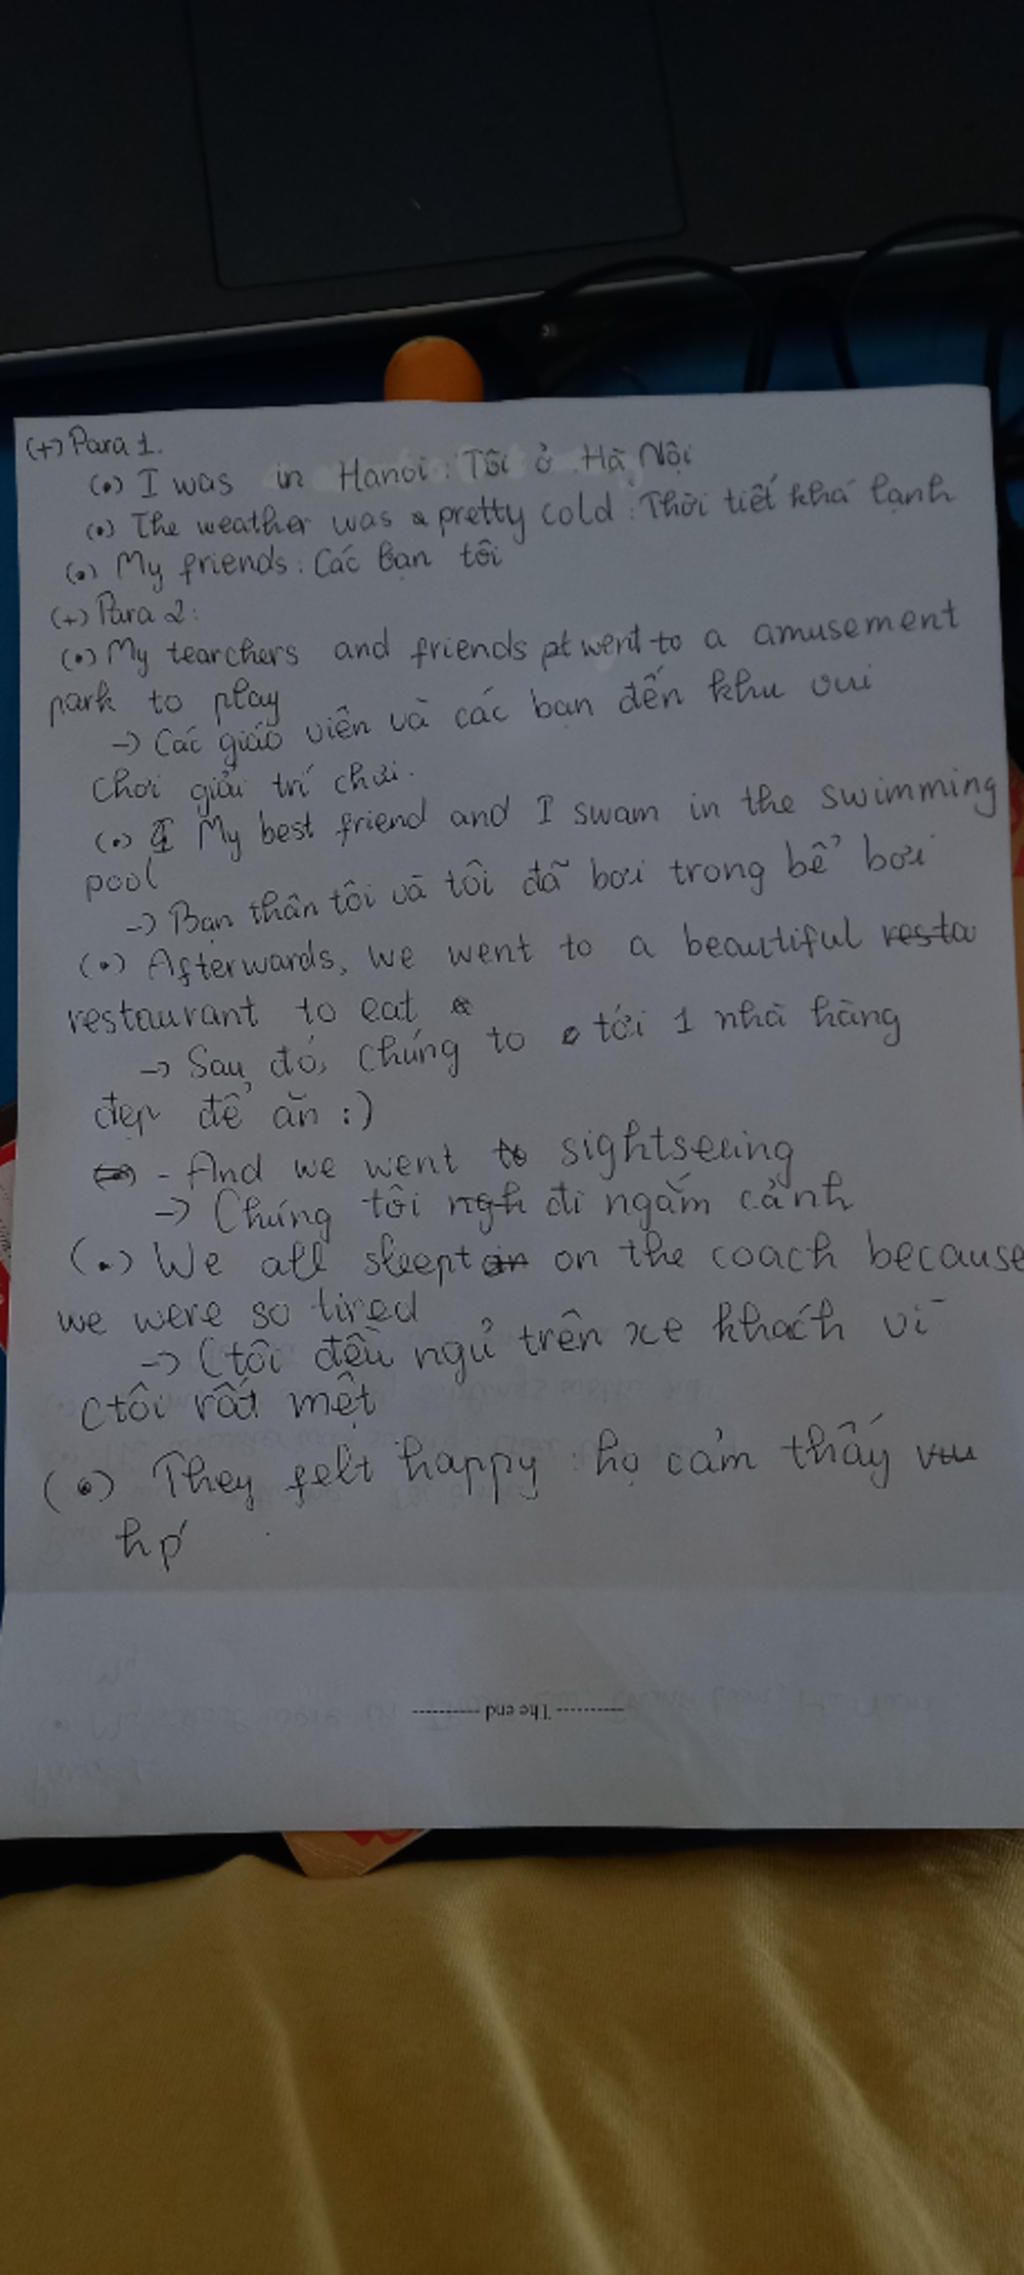 (+) Para 1.
(•) I was in Hanoi : Tôi ở Hà Nội
(•) The weather was a pretty cold : Thời tiết khá lạnh
(•) My friends : Các bạn tôi
(+) Para 2:
(•) My tearchers and friends pt went to a amusement
park to play
-> Các giáo viên và các bạn đến khu vui
chơi giải trí chơi.
(•) I My best friend and I swam in the swimming
pool
-> Bạn thân tôi và tôi đã bơi trong bể bơi
(•) Afterwards, we went to a beautiful resta
restaurant to eat
-> Sau đó, chúng to tới 1 nhà hàng
đẹp để ăn :)
- And we went to sightseeing
-> Chúng tôi ngh đi ngắm cảnh
(•) We all sleept in on the coach because
we were so tired
-> Ctôi đều ngủ trên xe khách vì
Ctôi rất mệt
(•) They felt happy : họ cảm thấy vui
hp
---------- The end ----------